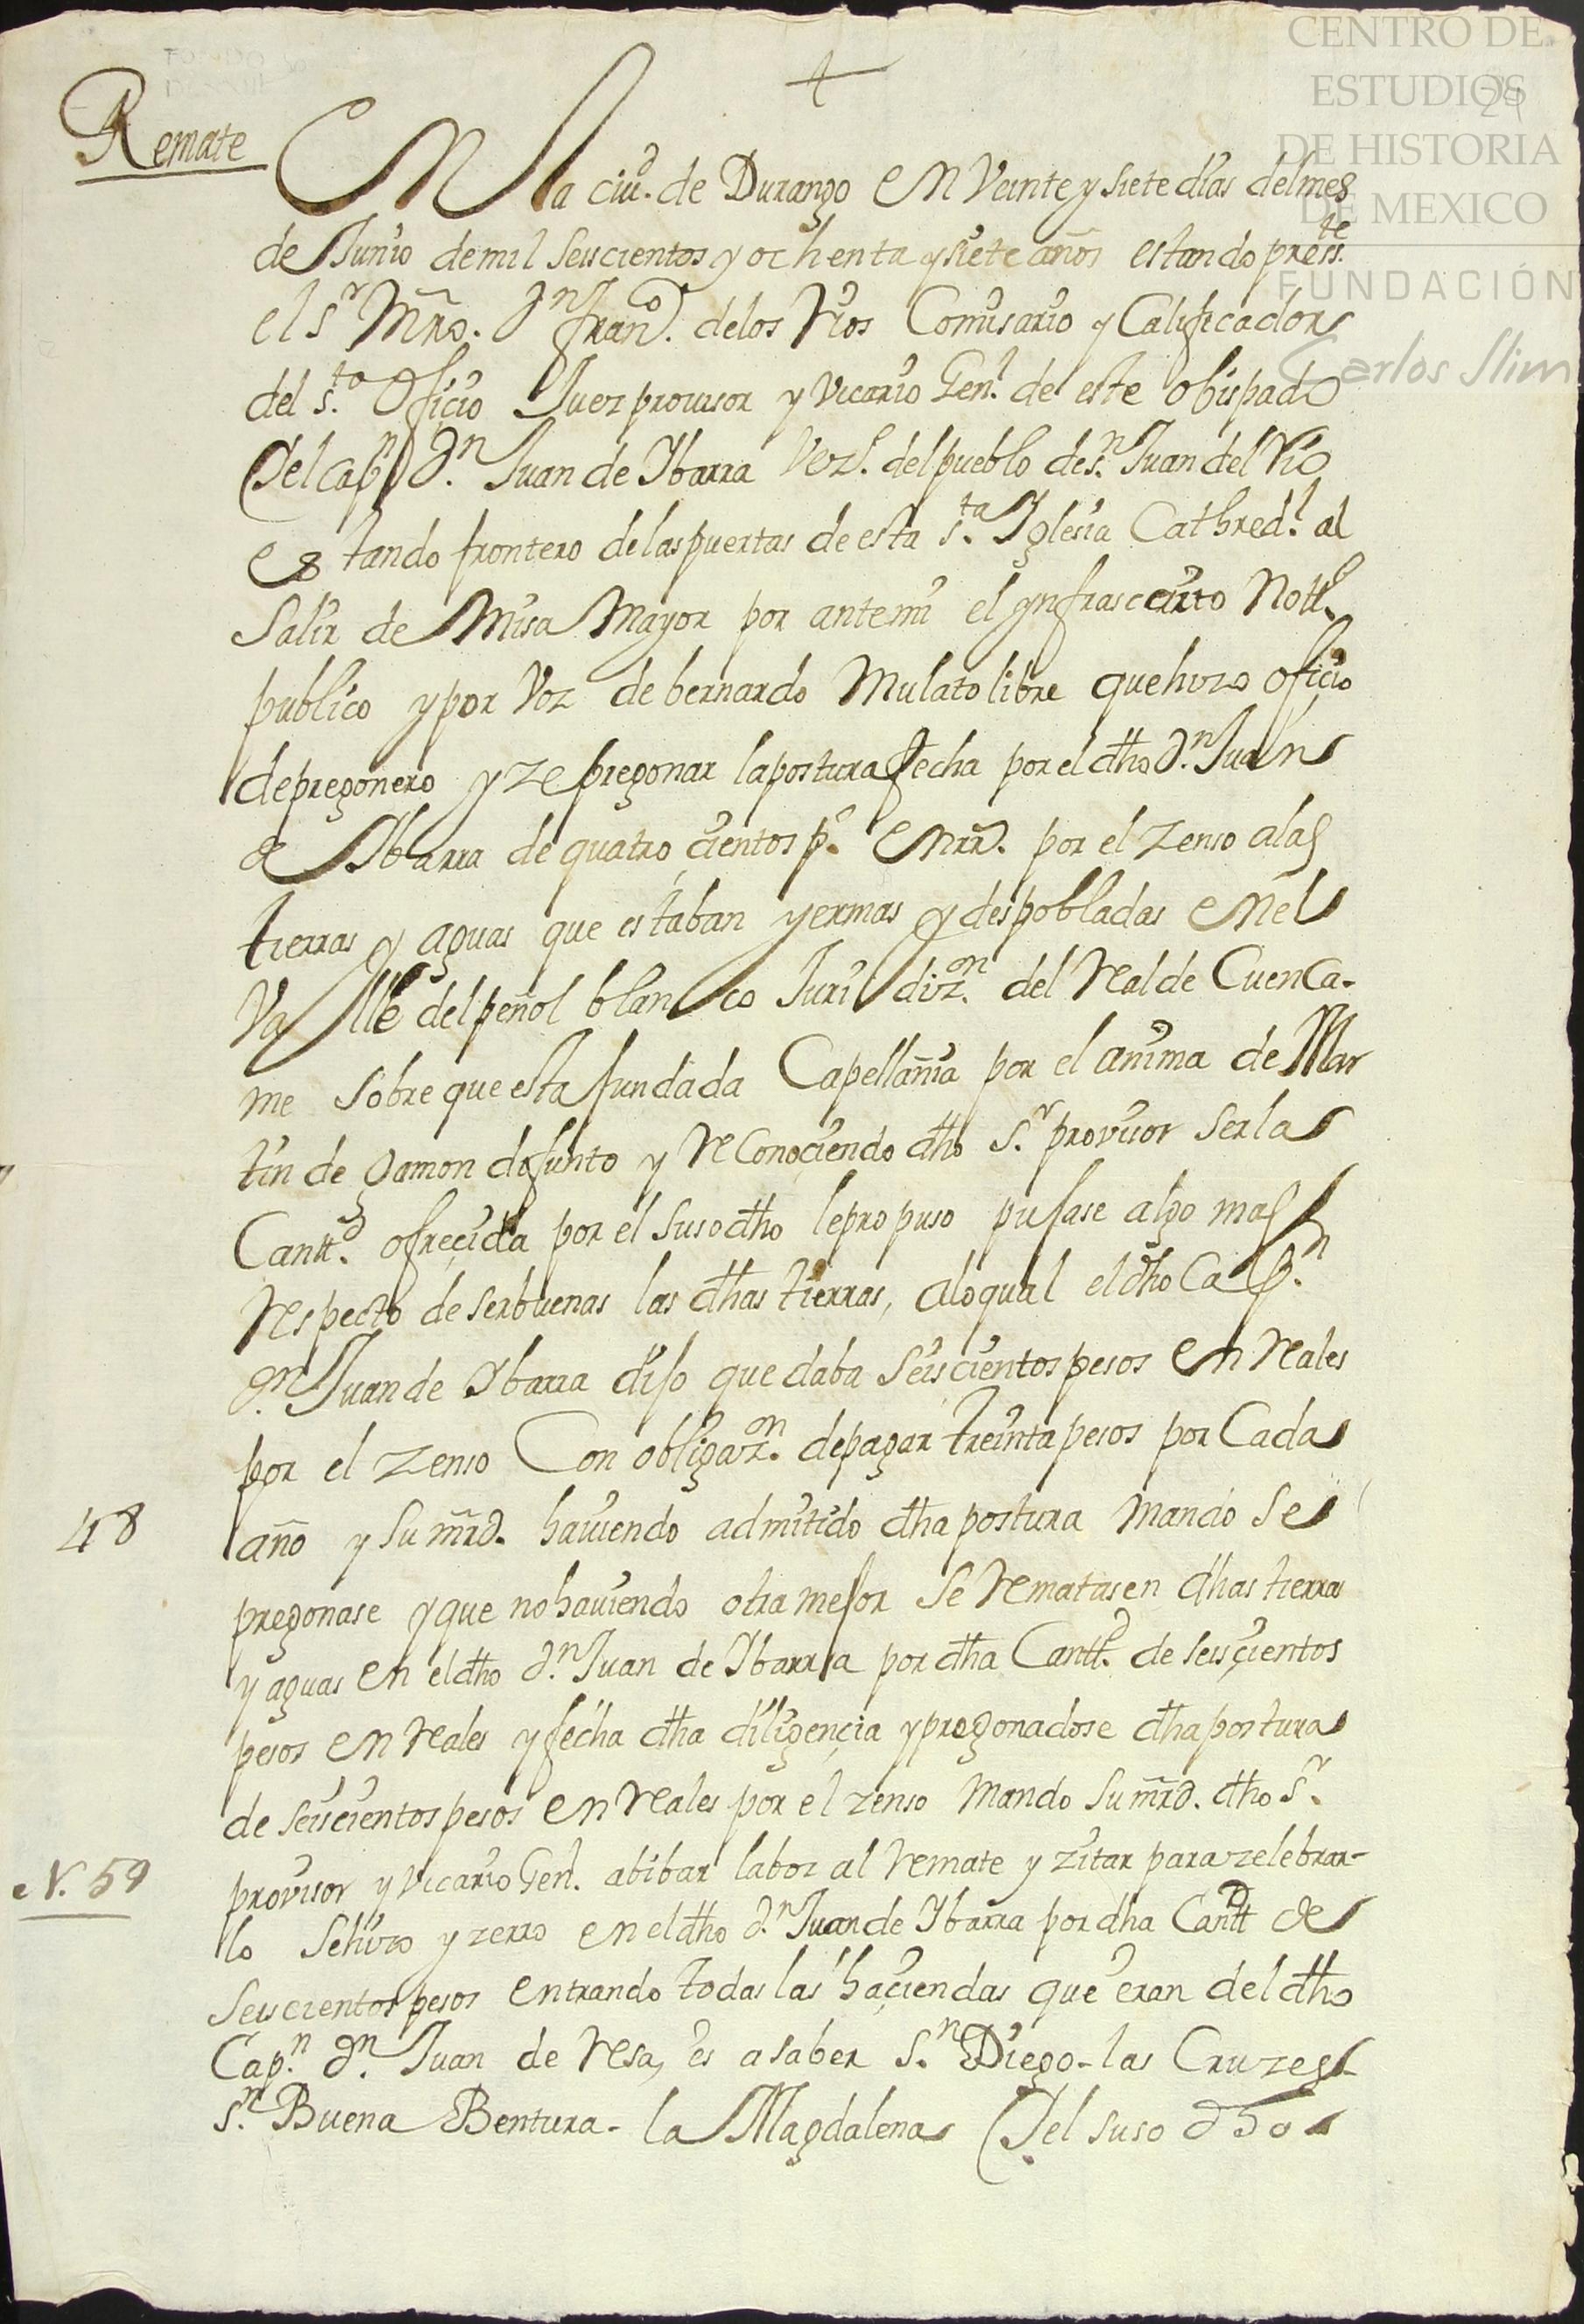 CENTRO DE
ESTUDIOS
DE HISTORIA
DE MEXICO
FUNDACIÓN
Carlos Slim
Remate
En la ciud. de Durango en Veinte y siete dias del mes
de Junio de mil seiscientos y ochenta y siete años estando presste.
el sr. Mro. Dn. Franco. de los Rios Comisario y Calificador
del sto. Oficio Juez provisor y Vicario Genl. de este obispado
Y el capn. Dn. Juan de Ybarra Vezo. del pueblo de sn. Juan del Rio
estando frontero de las puertas de esta sta. Yglesia Cathredl. al
Salir de Misa Mayor por ante mi el ynfrascripto Notto.
publico y por Voz de bernardo Mulato libre que hizo oficio
de pregonero yze pregonar la postura fecha por el dho Dn. Juan
de Ybarra de quatro çientos ps. en rrs. por el zenso a las
tierras y aguas que estaban yermas y despobladas en el
Valle del peñol blanco Jurisdizon. del Real de Cuenca-
me sobre que esta fundada Capellania por el anima de Mar
tin de gamon difunto y Reconociendo dho sr. provisor ser la
Cantd. ofreçida por el susodho le propuso pujase algo mas
Respecto de ser buenas las dhas tierras, a lo qual el dho Capn.
Dn. Juan de Ybarra dijo que daba Seiscientos pesos en Reales
por el zenso Con obligazon. de pagar treinta pesos por Cada
48
año y su mrd. haviendo admitido dha postura mando Se
pregonase y que no haviendo otra mejor Se Rematasen dhas tierras
y aguas en el dho Dn. Juan de Ybarra por dha Cantd. de seisçientos
pesos en Reales y fecha dha diligençia y pregonadose dha postura
de seiscientos pesos en Reales por el zenso Mando su mrd. dho sr.
N. 59
provisor y Vicario Genl. abibar la boz al Remate y zitar para zelebrar-
lo Se hizo y zerro en el dho Dn. Juan de Ybarra por dha Cantd de
Seiscientos pesos entrando todas las haçiendas que eran del dho
Capn. Dn. Juan de Resa, es a saber sn. Diego - las Cruzes -
sn. Buena Bentura - la Magdalena Y el suso dho